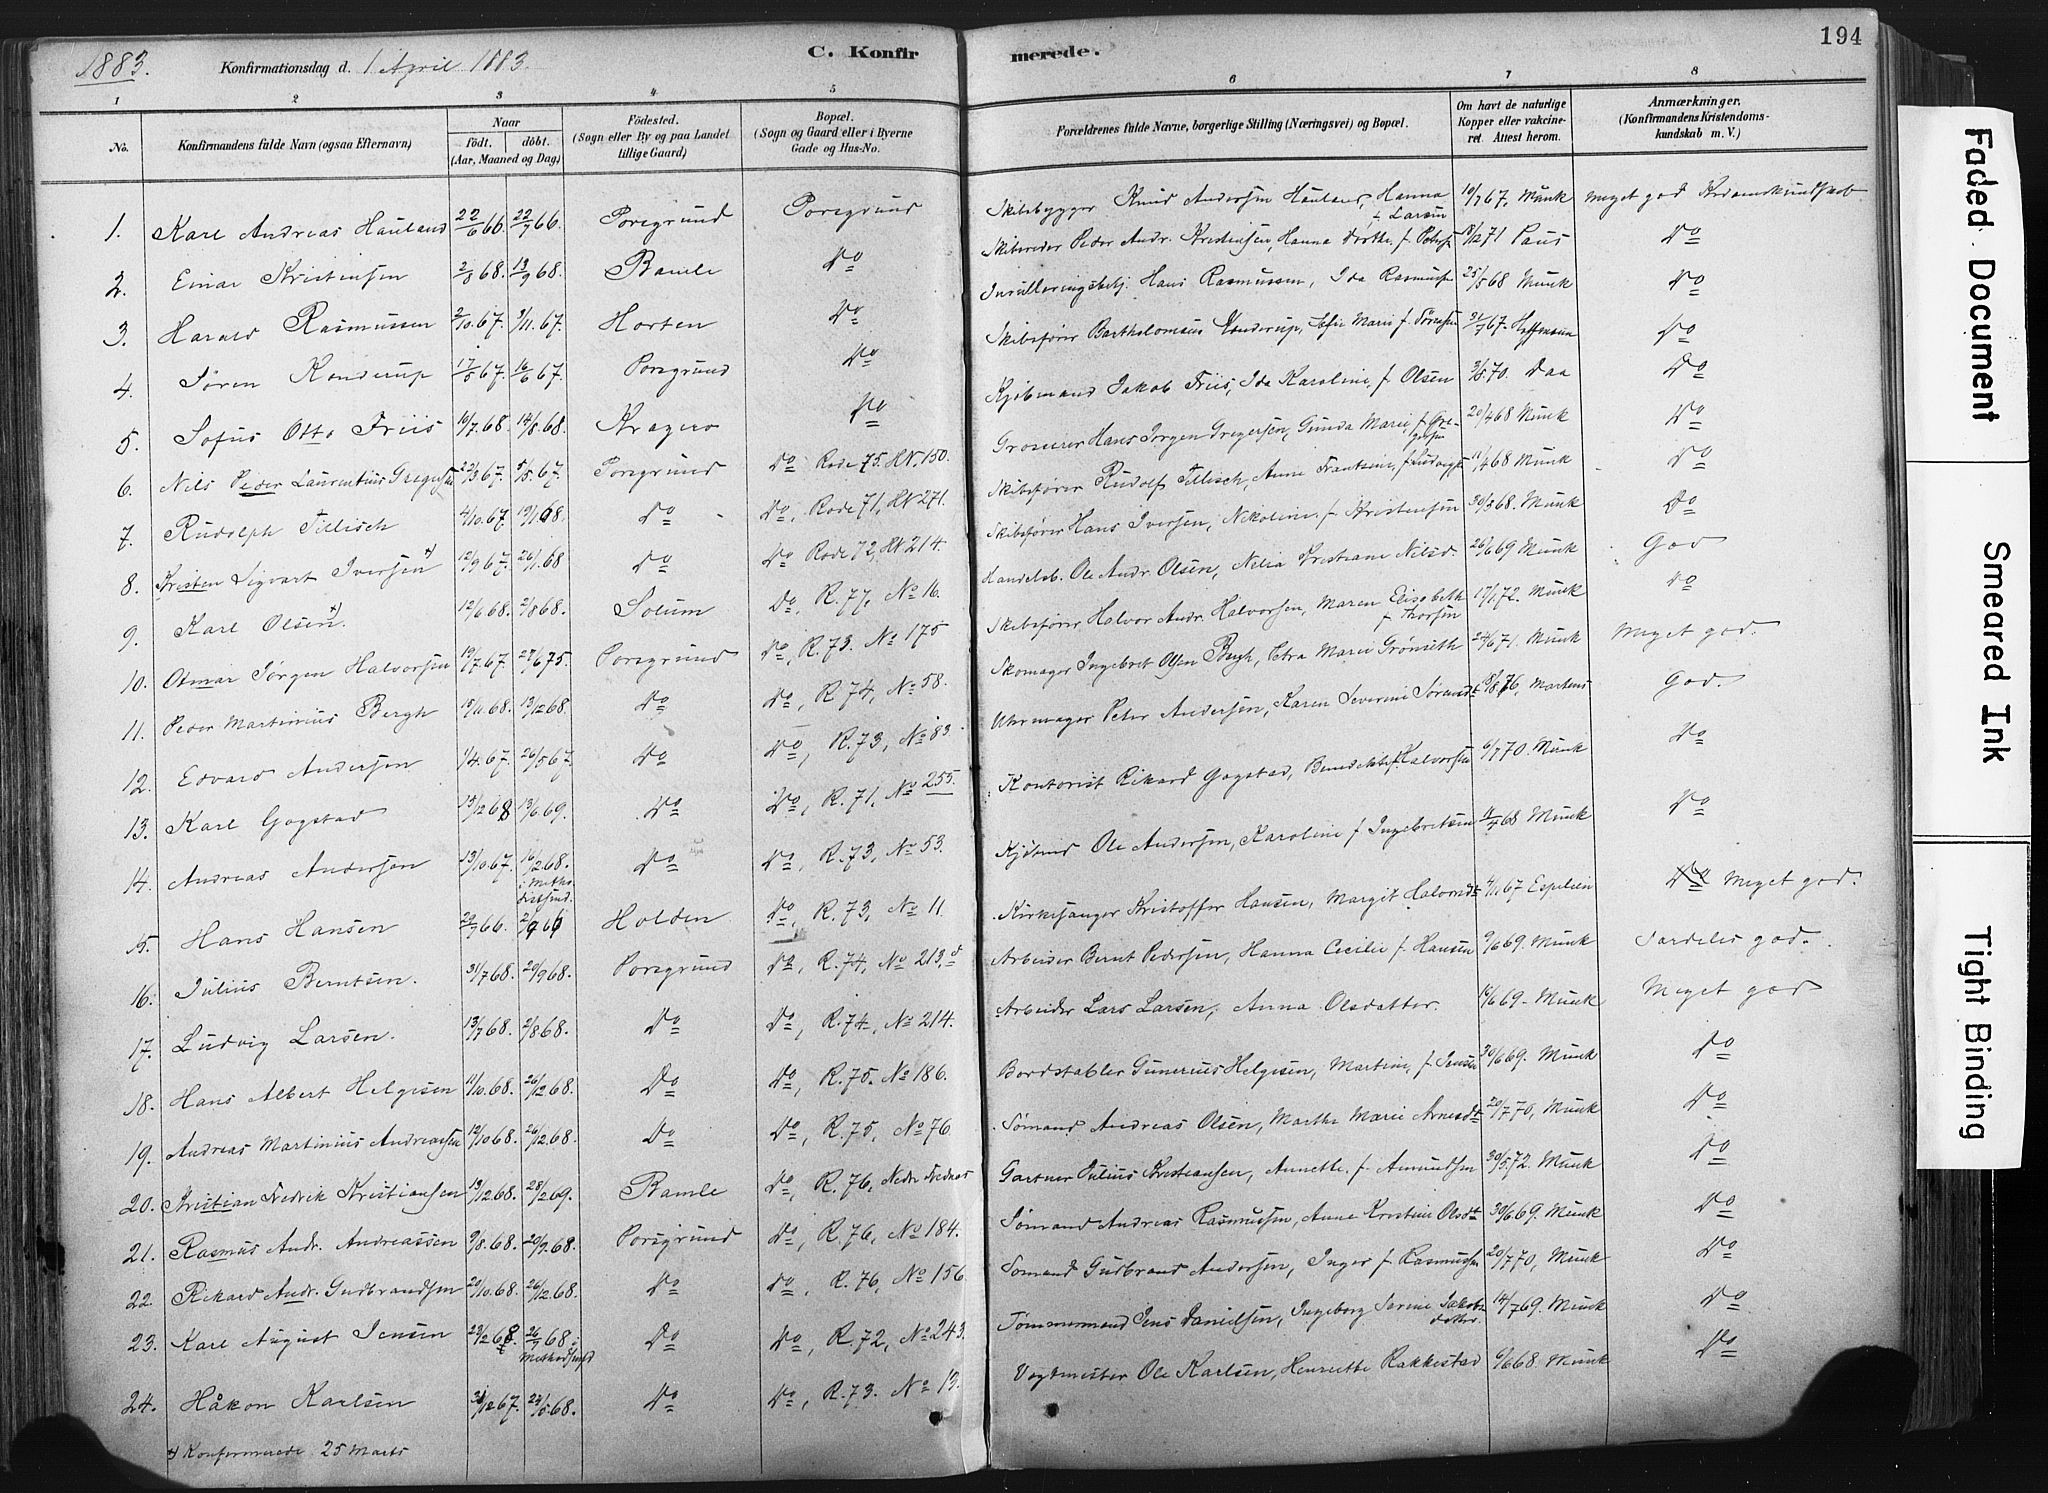 1883. Konfirmationsdag d. 1 April 1883. C. Konfirmerede. 194
1 2 3 4 5 6 7 8
No. Konfirmandens fulde Navn (ogsaa Efternavn) Naar født. døbt. (Aar, Maaned og Dag) Fødested. (Sogn eller By og paa Landet tillige Gaard) Bopæl. (Sogn og Gaard eller i Byerne Gade og Hus-No. Forældrenes fulde Navne, borgerlige Stilling (Næringsvei) og Bopæl. Om havt de naturlige Kopper eller vakcineret. Attest herom. Anmærkninger. (Konfirmandens Kristendomskundskab m. V.)
1. Karl Andreas Hauland 22/6 66. 22/7 66. Porsgrund Porsgrund Skibsbygger Knud Andersen Hauland, Hanna f. Larsen 10/7 67. Munk Meget god Kristendomskundskab
2. Einar Kristensen 2/8 68. 13/9 68. Bamle Do Skibsreder Peder Andr. Kristensen, Hanna Dorthe f. Peters 18/12 71 Paus Do
3. Harald Rasmussen 2/10. 67. 3/11. 67. Horten Do Inrulleringsbetj. Hans Rasmussen, Ida Rasmussen 25/5 68 Munk Do
4. Søren Konderup 17/5 67. 16/6 67. Porsgrund Do Skibsfører Bartholomæus Konderup, Sofie Marie f. Sørensen 31/7 67. Hoffmann Do
5. Sofus Otto Friis 10/7. 68. 14/8. 68. Kragerø Do Kjøbmand Jakob Friis, Ida Karoline, f. Olsen 3/5. 70. Daa Do
6. Nils Peder Laurentius Gregersen 22/3 67. 5/5. 67. Porsgrund Do Rode 75. HN. 150. Groserer Hans Jørgen Gregersen, Gunda Marie, f. Gregersen 20/4 68 Munk Do
7. Rudolph Tillisch 4/10. 67. 19/1 68. Do Do, Rode 71, HN 271. Skibsfører Rudolf Tillisch, Anne Frantsine, f. Ludvigs 11/4 68 Munk Do
8. Kristen Sigvart Iversen *) 12/9 67. 26/1. 68 Do Do Rode 72, HN 214. Skibsfører Hans Iversen, Nikoline f. Kristensen 30/3 68. Munk Do
9. Karl Olsen *). 12/6 68. 2/8 68. Solum Do, R. 77, No 16. Handelsb. Ole Andr. Olsen, Nilia Kristiane Nilsd. 26/6 69 Munk God
10. Otmar Jørgen Halvorsen 19/7. 67. 27/6 75. Porsgrund Do, R. 73. No 175 Skibsfører Halvor Andr. Halvorsen, Maren Elisabeth f. Thorsen 17/1. 72. Munk Do
11. Peder Martinius Bergh 15/11. 68. 13/12 68. Do Do, R. 74, No 58. Skomager Ingebret Olsen Bergh, Petra Marie Grønseth 24/6 71. Munk Meget god.
12. Edvard Andersen 1/4. 67. 26/5 67. Do Do, R. 73, No 83. Uhrmager Peter Andersen, Karen Severine Sørensd. 8/8 76, Martens God.
13. Karl Gogstad 13/12 68 13/6 69. Do Do, R. 71, No 255. Kontorist Rikard Gogstad, Benedikte f. Halvorsen 6/7 70. Munk Do
14. Andreas Andersen 13/10 67. 16/2 68. i Methodistsmd. Do Do, R. 73, No 53. Kjøbmd Ole Andersen, Karoline f. Ingebretsen 11/7 68 Munk Do
15. Hans Hansen 29/7 66. 2/9 66 Holden Do, R. 73, No 11. Kirkesanger Kristoffer Hansen, Margit Halvorsd. 4/11. 67 Espelien Do Meget god.
16. Julius Berntsen. 31/7 68. 20/9 68. Porsgrund Do, R. 74, No 213,d Arbeider Bernt Pedersen, Hanna Cecilie f. Hansen 9/6 69. Munk Særdeles god.
17. Ludvig Larsen. 13/7 68. 2/8 68. Do Do, R. 74, No 214. Arbeider Lars Larsen, Anna Olsdatter. 16/6 69. Munk Meget god
18. Hans Albert Helgesen 11/10. 68. 26/12 68. Do Do, R. 75. No 186. Bordstabler Gunerius Helgesen, Martine, f. Jensen 30/6 69. Munk Do
19. Andreas Martinius Andreassen 12/10 68. 26/12 68. Do Do, R. 75, No 76. Sømand Andreas Olsen, Marthe Marie Arnesdt. 20/7 70, Munk Do
20. Kristian Fredrik Kristiansen 19/12 68. 28/2 69. Bamle Do, R. 76, Nedre Frednes Gartner Julius Kristiansen, Annette f. Amundsen 30/5. 72. Munk Do
21. Rasmus Andr. Andreassen 9/8. 68. 20/9. 68. Porsgrund Do, R. 76, No 184. Sømand Andreas Rasmussen, Anne Kristine Olsdt. 30/6 69. Munk Do
22. Rikard Andr. Gudbrandsen 20/10. 68. 26/12. 68. Do Do, R. 76, No 156. Sømand Gudbrand Andersen, Inger f. Rasmussen 20/7 70, Munk Do
23. Karl August Jensen 23/2 68. 26/7 68 i Methodsmfd Do Do, R. 72, No 243. Tømmermand Jens Danielsen, Ingeborg Serine Jakobsdatter. 14/7 69. Munk Do
24. Håkon Karlsen 31/12 67. 24/5. 68. Do Do, R. 73. No 13. Vegtmester Ole Karlsen, Henriette Rakkestad 6/6 68. Munk Do
*) Konfirmerede 25 Marts
Faded Document
Smeared Ink
Tight Binding